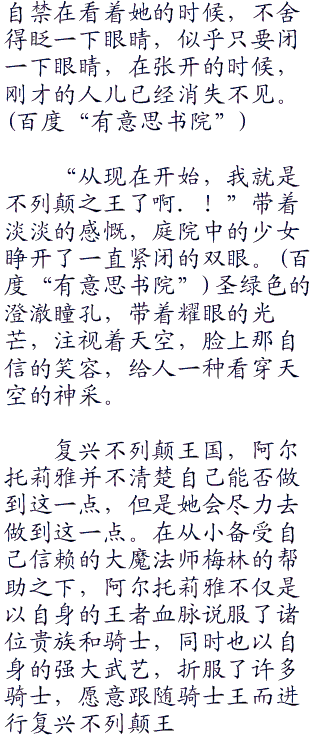 自禁在看着她的时候，不舍
得眨一下眼睛，似乎只要闭
一下眼睛，在张开的时候，
刚才的人儿已经消失不见。
(百度“有意思书院”)
“从现在开始，我就是
不列颠之王了啊．！”带着
淡淡的感慨，庭院中的少女
睁开了一直紧闭的双眼。(百
度“有意思书院”)圣绿色的
澄澈瞳孔，带着耀眼的光
芒，注视着天空，脸上那自
信的笑容，给人一种看穿天
空的神采。
复兴不列颠王国，阿尔
托莉雅并不清楚自己能否做
到这一点，但是她会尽力去
做到这一点。在从小备受自
己信赖的大魔法师梅林的帮
助之下，阿尔托莉雅不仅是
以自身的王者血脉说服了诸
位贵族和骑士，同时也以自
身的强大武艺，折服了许多
骑士，愿意跟随骑士王而进
行复兴不列颠王